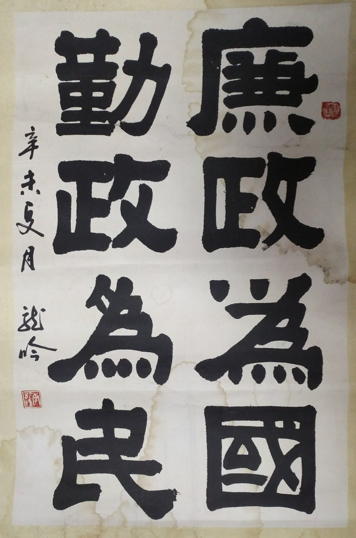 廉政為國
勤政為民
辛未夏月 龍吟